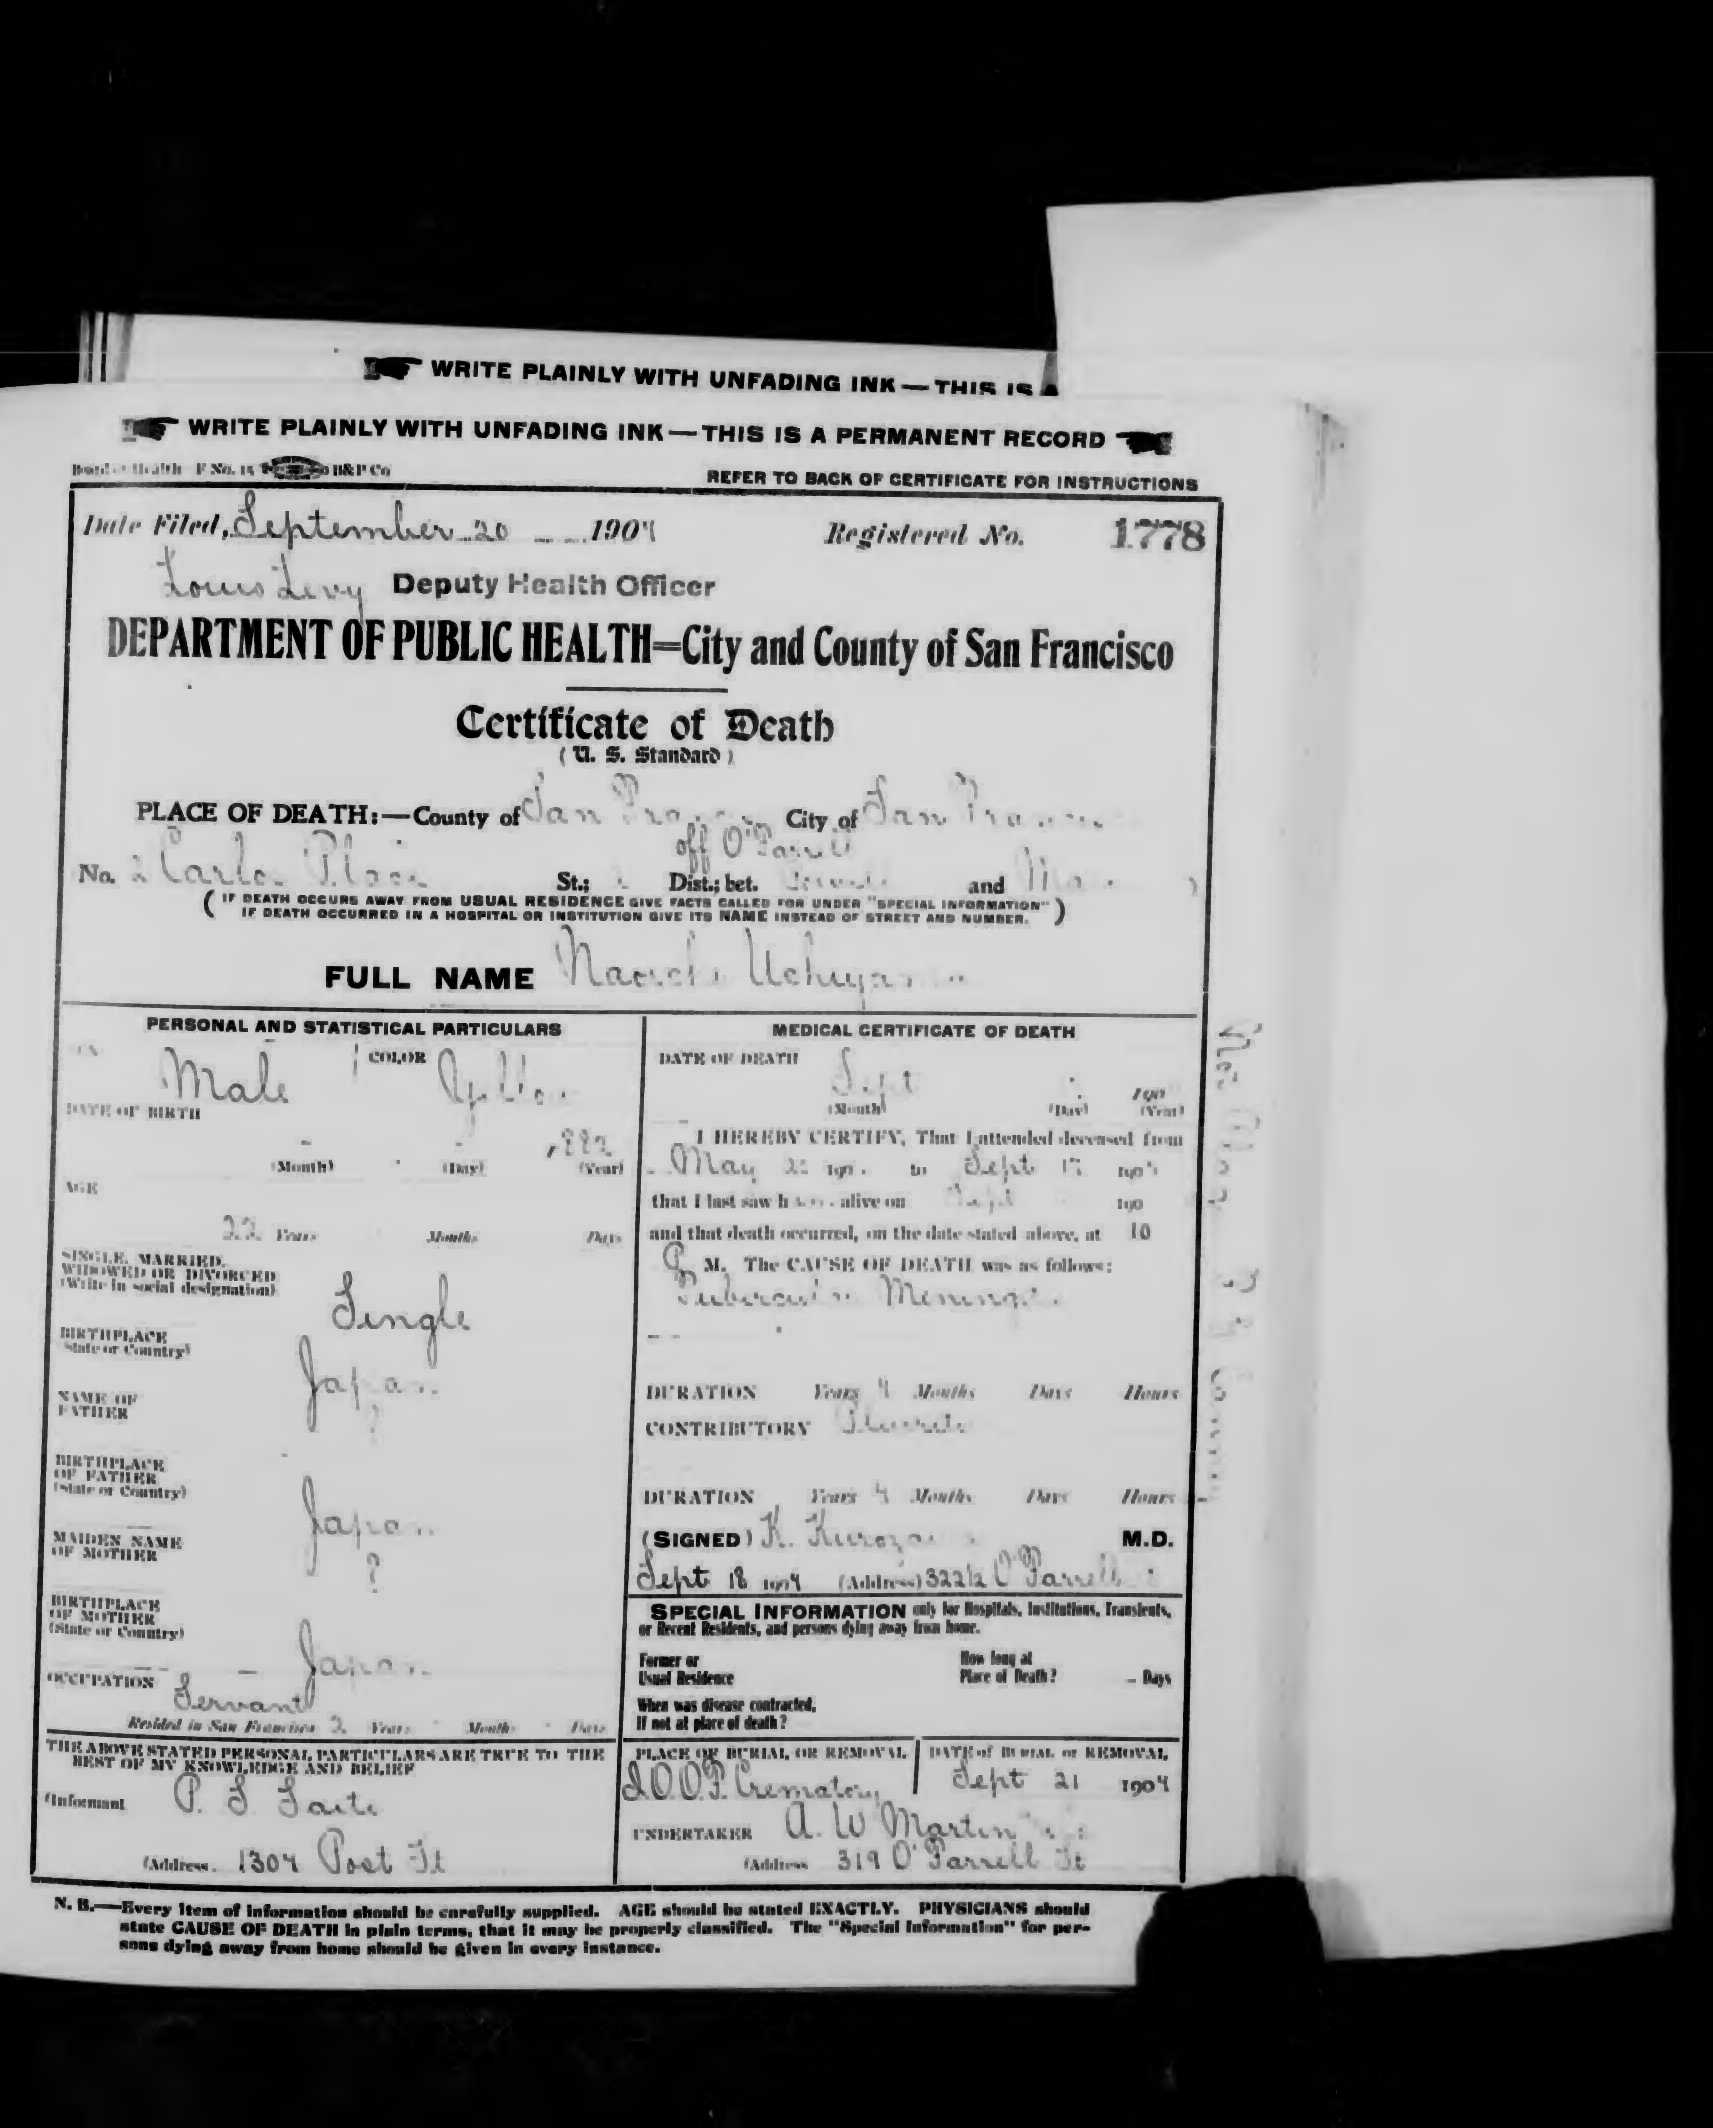 WRITE PLAINLY WITH UNFADING INK — THIS IS A
WRITE PLAINLY WITH UNFADING INK — THIS IS A PERMANENT RECORD
Health F No. 15 H&P Co
REFER TO BACK OF CERTIFICATE FOR INSTRUCTIONS
Date Filed, September 20 1904 Registered No. 1778
Louis Levy Deputy Health Officer
DEPARTMENT OF PUBLIC HEALTH=City and County of San Francisco
Certificate of Death
(U. S. Standard)
PLACE OF DEATH:—County of San Fran City of San Fran
off O'Farrell
No. 2 Carlos Place St.; Dist.; bet. and
( IF DEATH OCCURS AWAY FROM USUAL RESIDENCE GIVE FACTS CALLED FOR UNDER "SPECIAL INFORMATION"
IF DEATH OCCURRED IN A HOSPITAL OR INSTITUTION GIVE ITS NAME INSTEAD OF STREET AND NUMBER. )
FULL NAME Uchiya
PERSONAL AND STATISTICAL PARTICULARS
SEX Male COLOR Yellow
DATE OF BIRTH
1882
(Month) (Day) (Year)
AGE
22 Years Months Days
SINGLE, MARRIED,
WIDOWED OR DIVORCED
(Write in social designation)
Single
BIRTHPLACE
State or Country)
Japan
NAME OF
FATHER
?
BIRTHPLACE
OF FATHER
(State or Country)
Japan
MAIDEN NAME
OF MOTHER
?
BIRTHPLACE
OF MOTHER
(State or Country)
Japan
OCCUPATION
Servant
Resided in San Francisco 2 Years Months Days
THE ABOVE STATED PERSONAL PARTICULARS ARE TRUE TO THE
BEST OF MY KNOWLEDGE AND BELIEF
(Informant P. S. Saito
(Address 1304 Post St
MEDICAL CERTIFICATE OF DEATH
DATE OF DEATH
Sept 190
(Month) (Day) (Year)
I HEREBY CERTIFY, That I attended deceased from
May 190 to Sept 17 1904
that I last saw h alive on Sept 190
and that death occurred, on the date stated above, at 10
P M. The CAUSE OF DEATH was as follows:
Tubercular Mening
DURATION Years 4 Months Days Hours
CONTRIBUTORY
DURATION Years 4 Months Days Hours
(SIGNED) K. M.D.
Sept 18 1904 (Address) 322 1/2 O'Farrell
SPECIAL INFORMATION only for Hospitals, Institutions, Transients,
or Recent Residents, and persons dying away from home.
Former or
Usual Residence
How long at
Place of Death? Days
When was disease contracted,
If not at place of death?
PLACE OF BURIAL OR REMOVAL
I.O.O.F. Crematory
DATE of BURIAL or REMOVAL
Sept 21 1904
UNDERTAKER A. W Martin
(Address 319 O'Farrell St
N. B.—Every item of information should be carefully supplied. AGE should be stated EXACTLY. PHYSICIANS should
state CAUSE OF DEATH in plain terms, that it may be properly classified. The "Special Information" for per-
sons dying away from home should be given in every instance.